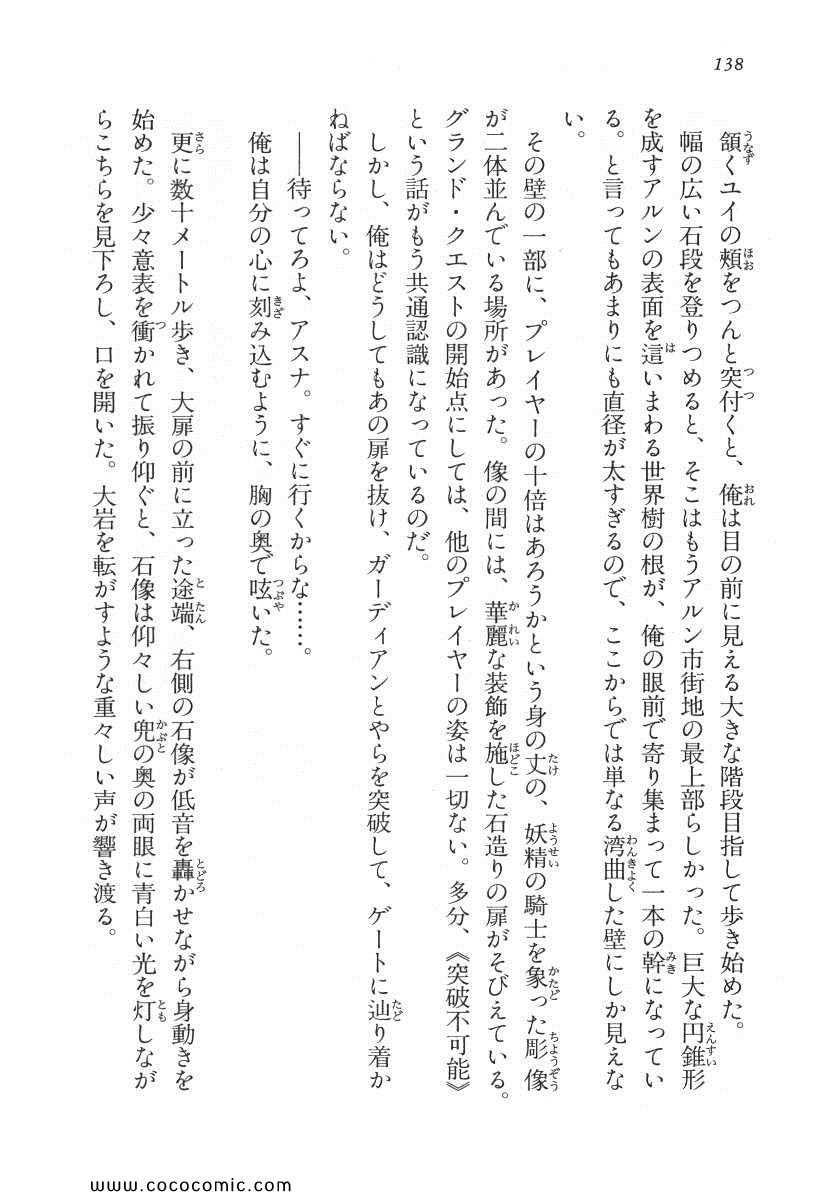 138
頷くユイの頬をつんと突付くと、俺は目の前に見える大きな階段目指して歩き始めた。
幅の広い石段を登りつめると、そこはもうアルン市街地の最上部らしかった。巨大な円錐形
を成すアルンの表面を這いまわる世界樹の根が、俺の眼前で寄り集まって一本の幹になってい
る。と言ってもあまりにも直径が太すぎるので、ここからでは単なる湾曲した壁にしか見えな
い。
その壁の一部に、プレイヤーの十倍はあろうかという身の丈の、妖精の騎士を象った彫像
が二体並んでいる場所があった。像の間には、華麗な装飾を施した石造りの扉がそびえている。
グランド・クエストの開始点にしては、他のプレイヤーの姿は一切ない。多分、《突破不可能》
という話がもう共通認識になっているのだ。
しかし、俺はどうしてもあの扉を抜け、ガーディアンとやらを突破して、ゲートに辿り着か
ねばならない。
――待ってろよ、アスナ。すぐに行くからな……。
俺は自分の心に刻み込むように、胸の奥で呟いた。
更に数十メートル歩き、大扉の前に立った途端、右側の石像が低音を轟かせながら身動きを
始めた。少々意表を衝かれて振り仰ぐと、石像は仰々しい兜の奥の両眼に青白い光を灯しなが
らこちらを見下ろし、口を開いた。大岩を転がすような重々しい声が響き渡る。
www.cococomic.com/